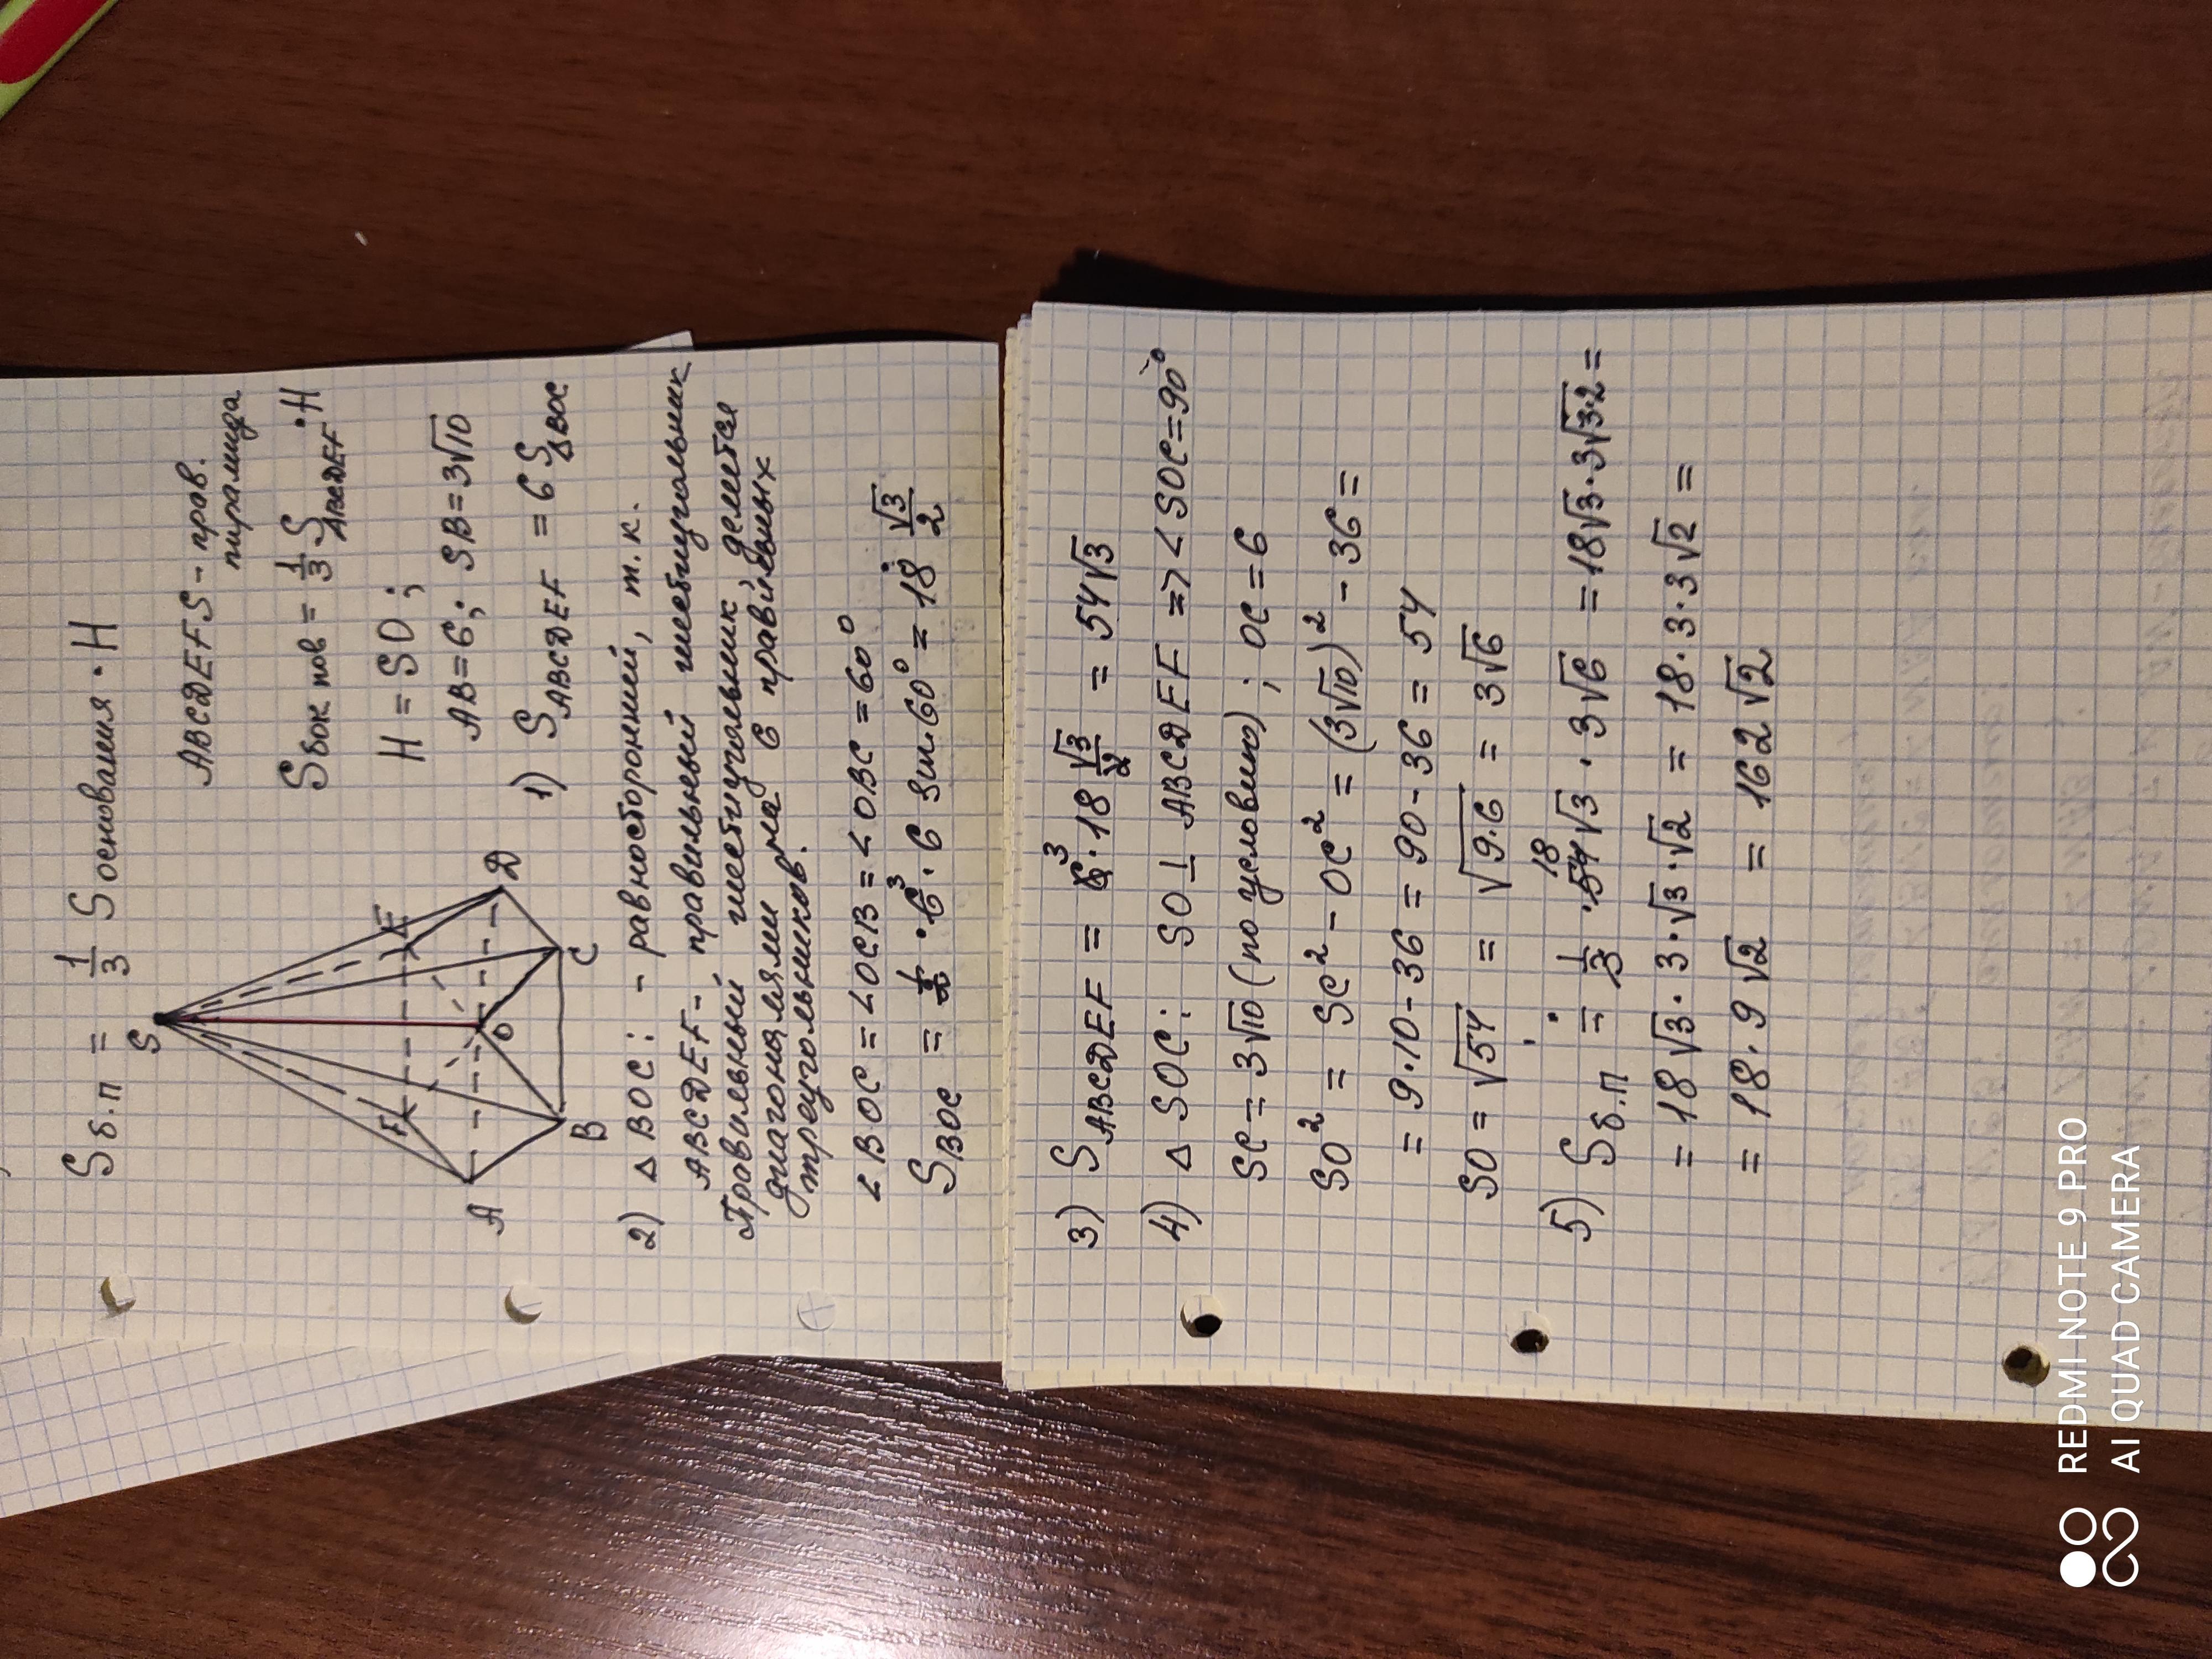 Sб.п = 1/3 Sоснования · H
S
A
B
C
D
E
F
O
ABCDEFS - прав. пирамида
Sбок пов = 1/3 S ABCDEF · H
H = SO;
AB = 6; SB = 3√10
1) S ABCDEF = 6 S ΔBOC
2) Δ BOC: - равносторонний, т.к.
ABCDEF - правильный шестиугольник
Правильный шестиугольник делится
диагоналями на 6 правильных
треугольников.
∠BOC = ∠OCB = ∠OBC = 60°
S BOC = 1/2 · 6 3 · 6 Sin 60° = 18 · √3/2
3) S ABCDEF = 6 3 · 18 √3/2 = 54√3
4) Δ SOC: SO ⊥ ABCDEF => ∠SOC = 90°
SC = 3√10 (по условию); OC = 6
SO² = SC² - OC² = (3√10)² - 36 =
= 9·10 - 36 = 90 - 36 = 54
SO = √54 = √9·6 = 3√6
5) Sб.п = 1/3 · 54 18 √3 · 3√6 = 18√3 · 3√3·2 =
= 18√3 · 3·√3·√2 = 18·3·3√2 =
= 18·9√2 = 162√2
REDMI NOTE 9 PRO
AI QUAD CAMERA